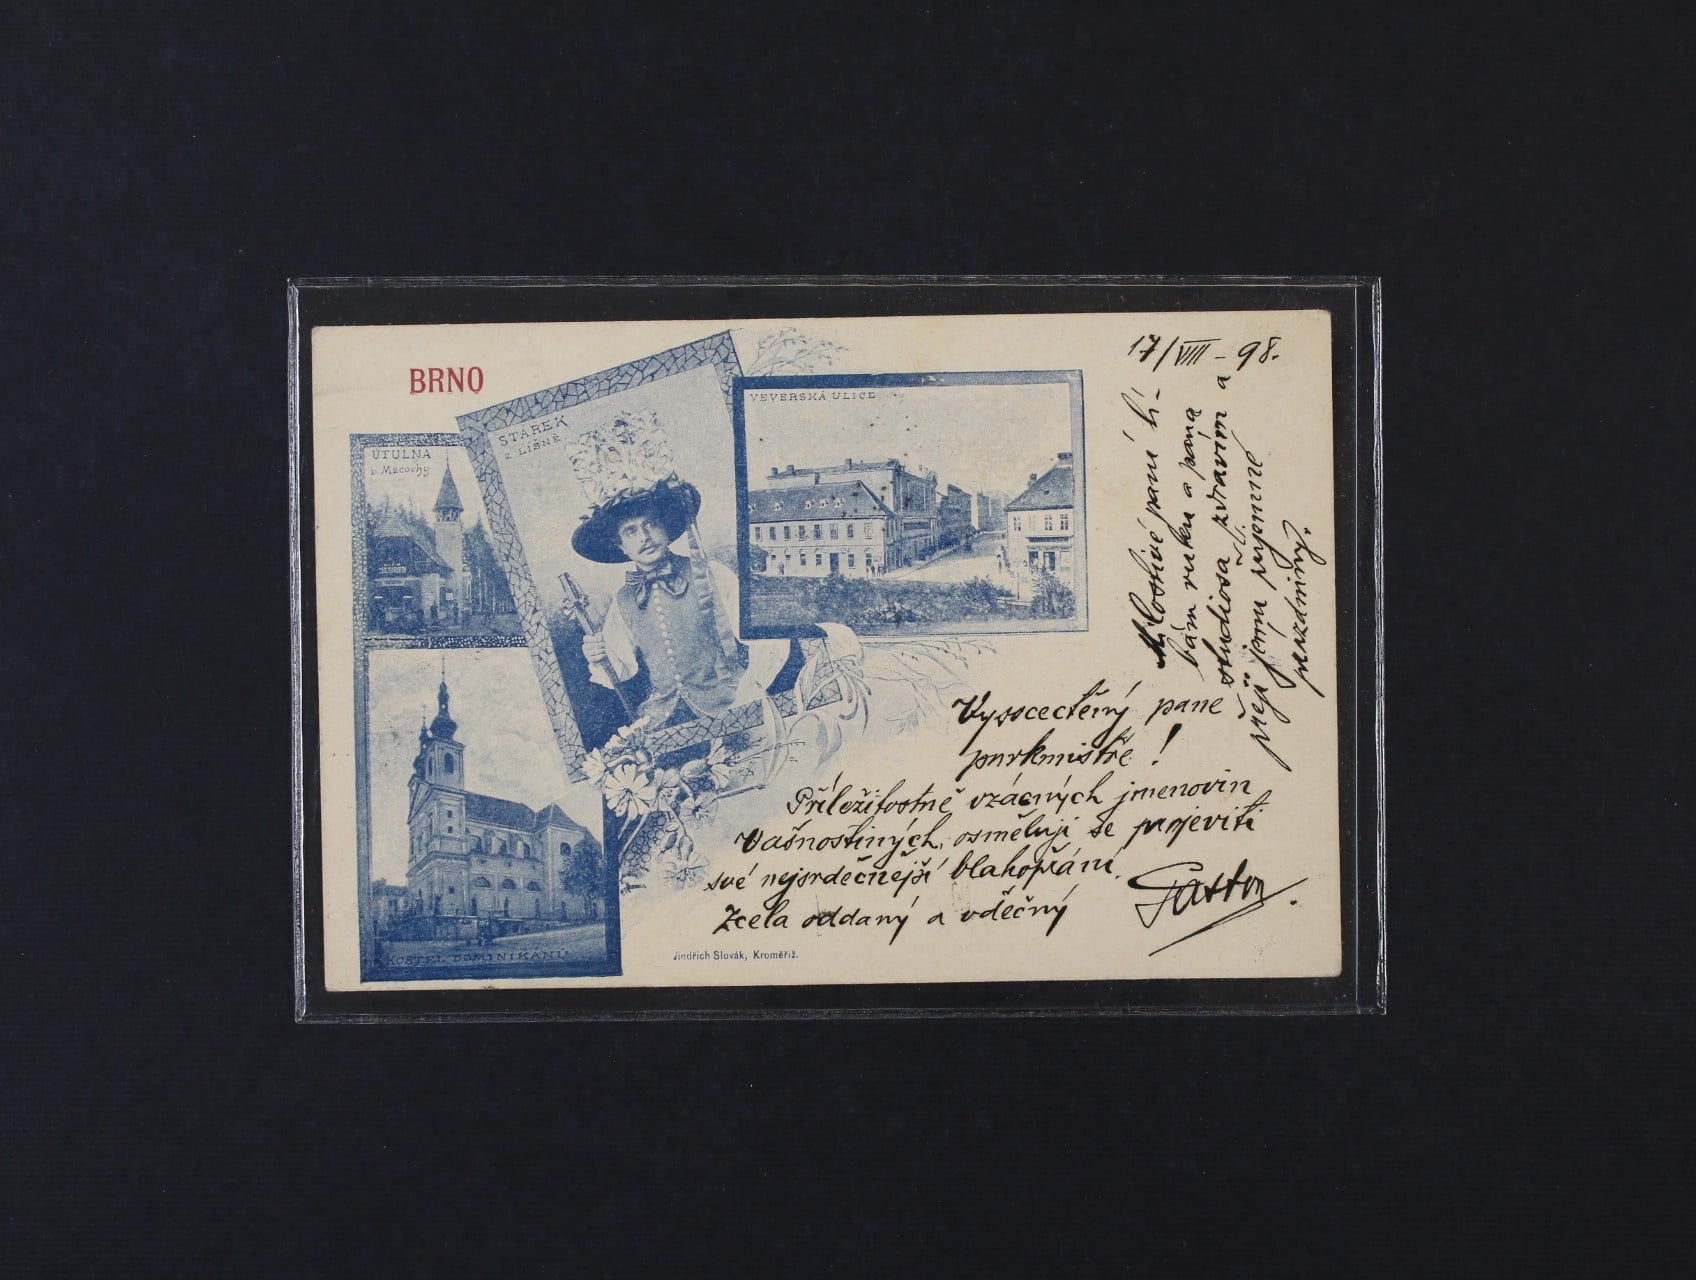 BRNO
ÚTULNA
u Macochy
STÁREK
Z LÍŠNĚ
VEVERSKÁ ULICE
KOSTEL DOMINIKÁNŮ
Jindřich Slovák, Kroměříž.
17/VIII - 98.
Milostivé paní lí-
bám ruku a pana
studiosa zdravím a
přeji jemu příjemné
prázdniny.
Vysocectěný pane
purkmistře!
Příležitostně vzácných jmenovin
Vašnostiných, osměluji se projeviti
své nejsrdečnější blahopřání.
Zcela oddaný a vděčný
Gaston.